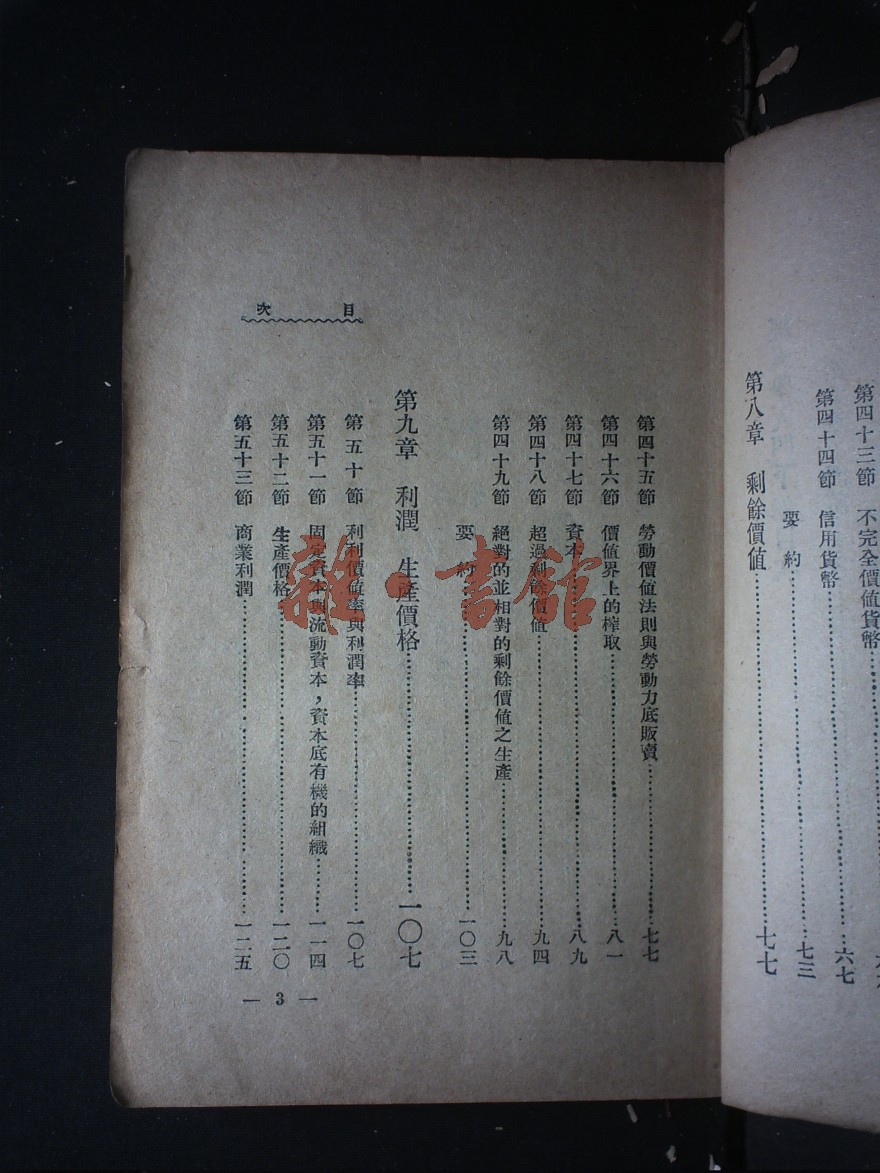 第四十三節　不完全價值貨幣
第四十四節　信用貨幣……六七
要約……七三
第八章　剩餘價值……七七
目次
第四十五節　勞動價值法則與勞動力底販賣……七七
第四十六節　價値界上的榨取……八一
第四十七節　資本……八九
第四十八節　超過剩餘價值……九四
第四十九節　絕對的並相對的剩餘價值之生產……九八
要約……一〇三
第九章　利潤　生產價格……一〇七
第五十節　利利價値率與利潤率……一〇七
第五十一節　固定資本與流動資本，資本底有機的組織……一一四
第五十二節　生產價格……一二〇
第五十三節　商業利潤……一二五
— 3 —
雜·書館